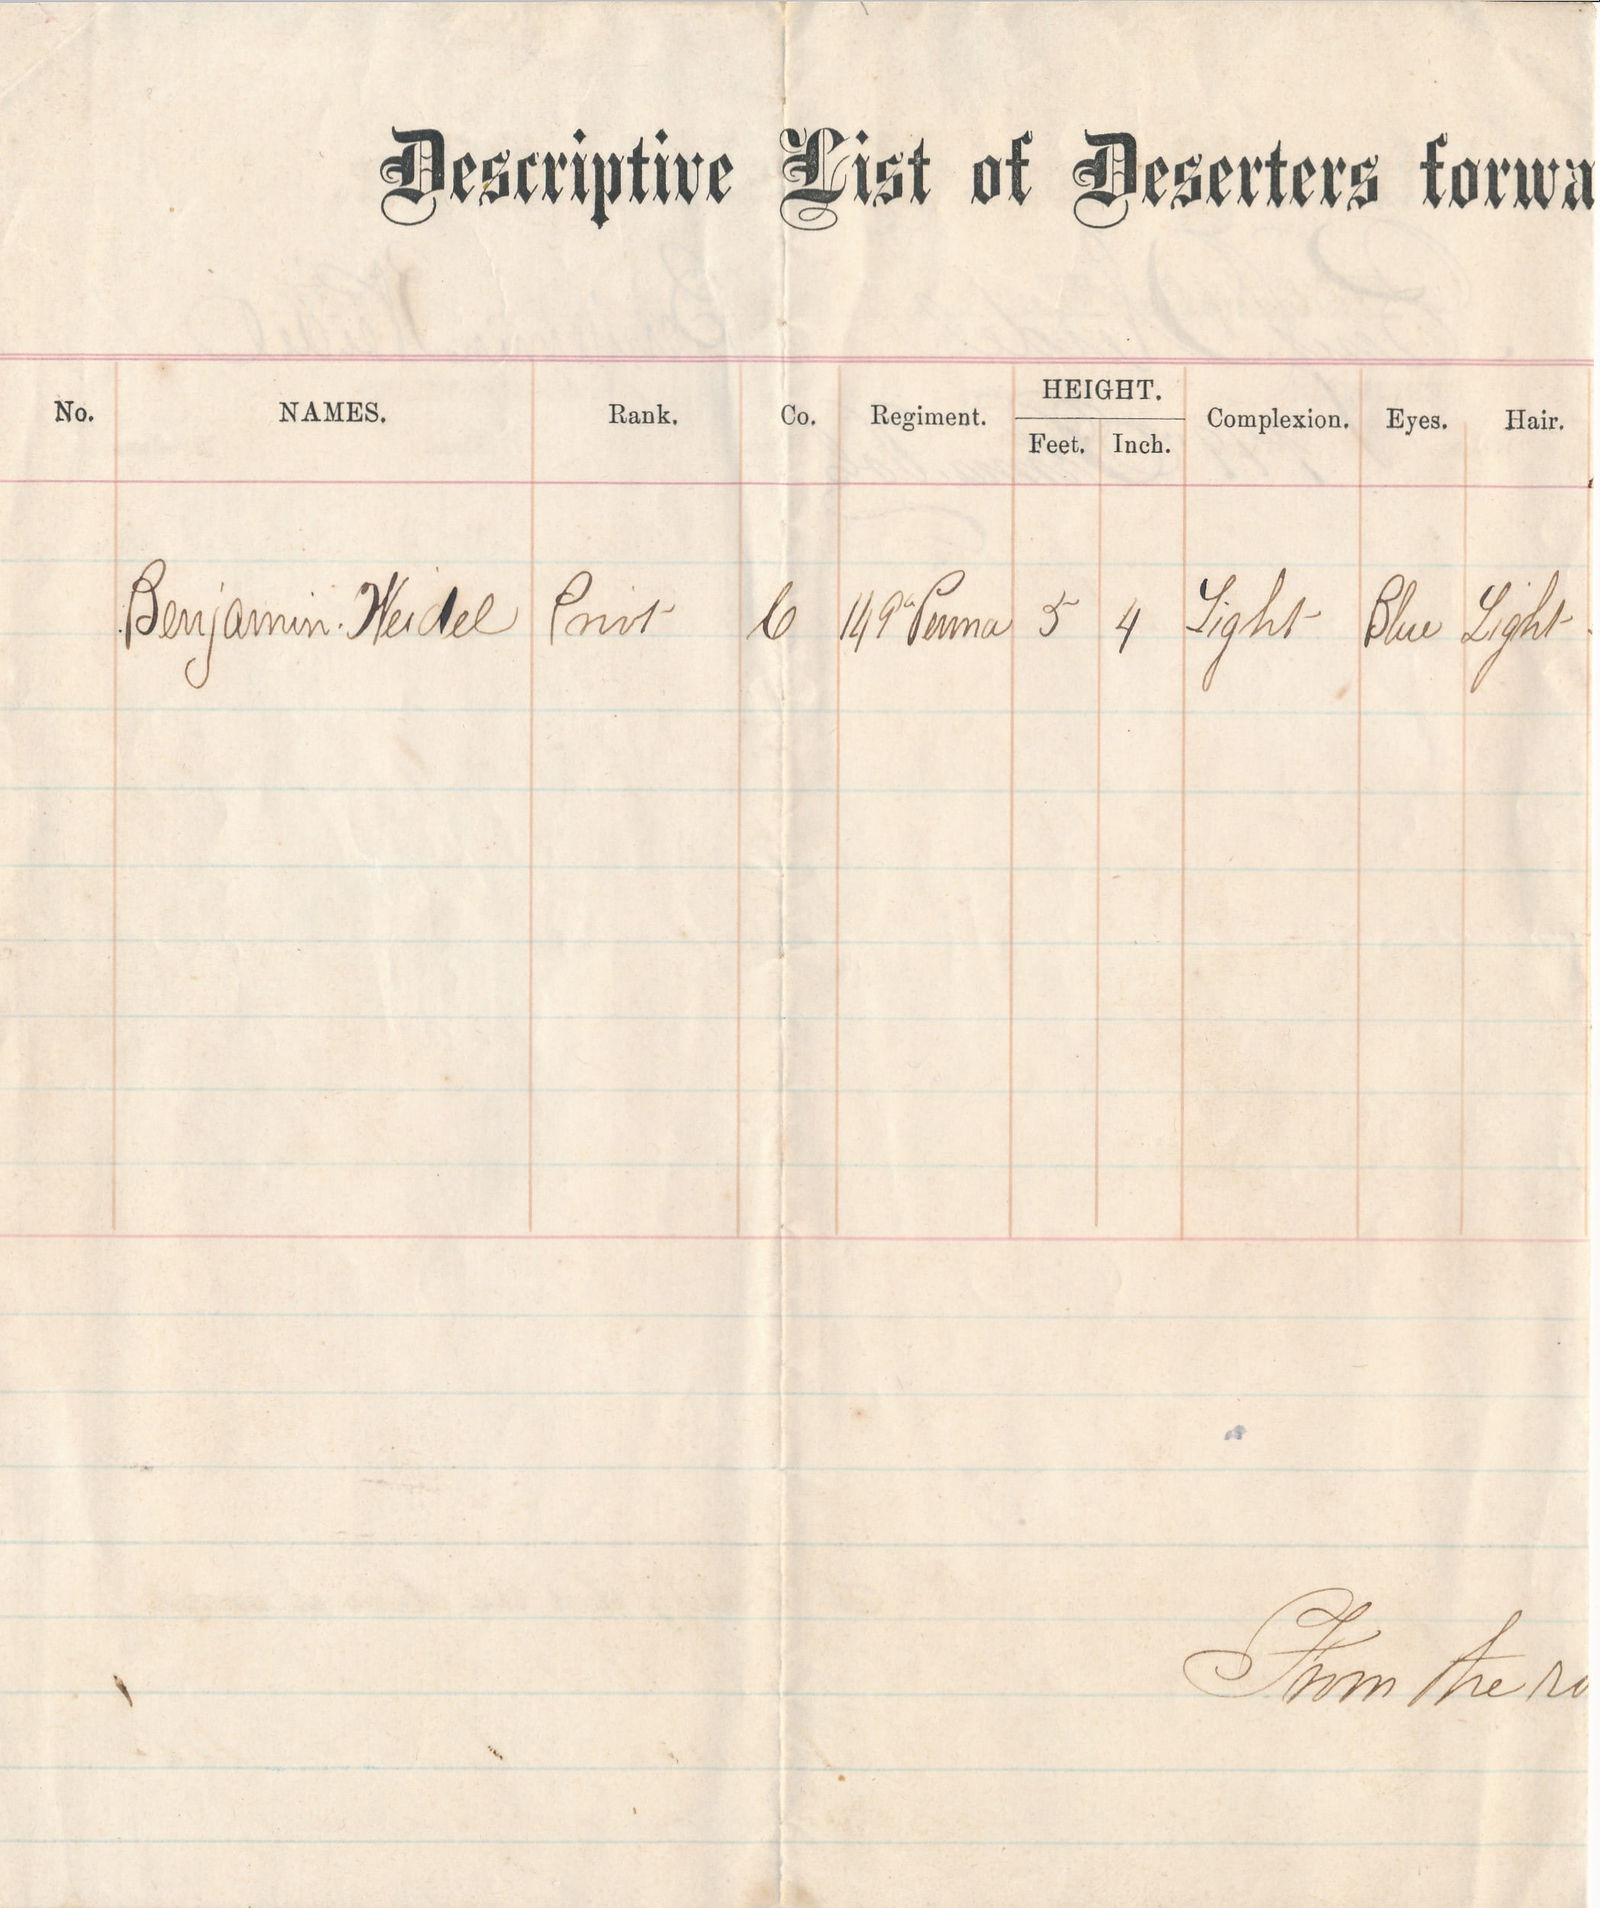 Descriptive List of Deserters forwa
No. NAMES. Rank. Co. Regiment. HEIGHT. Feet. Inch. Complexion. Eyes. Hair.
Benjamin. Weidel Privt C 149" Penna 5 4 Light Blue Light
From the ro